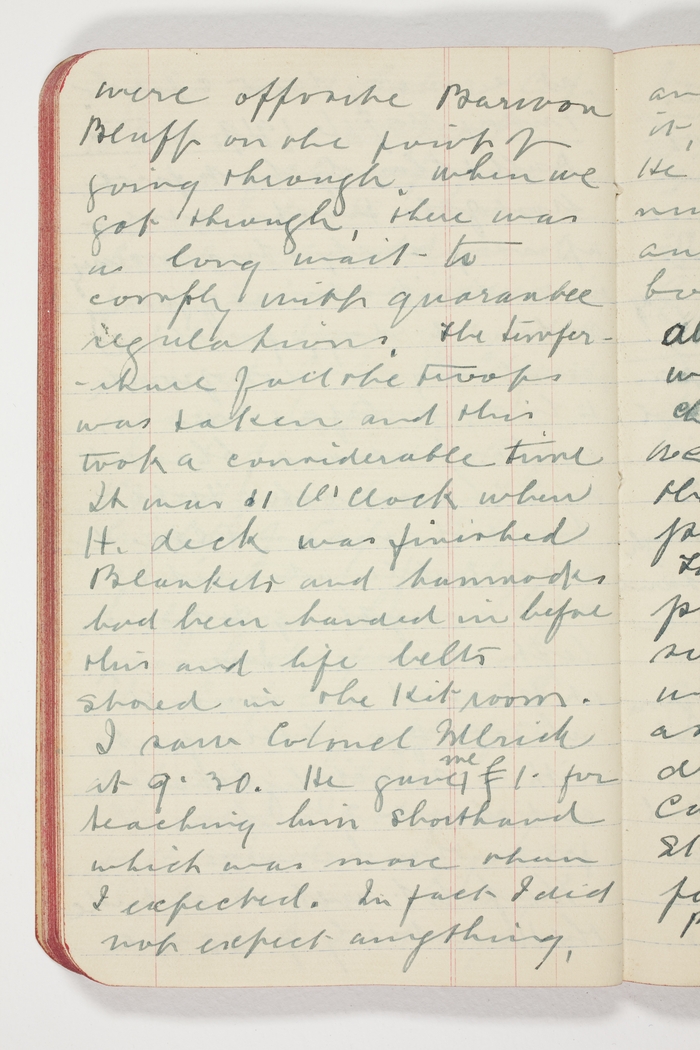 were opposite Barwon
Bluff on the point of
going through. when we
got through, there was
a long wait to
comply with quarantee
regulations. The temper-
-ature of all the troops
was taken and this
took a considerable time
It was 11 O'Clock when
H. deck was finished
Blankets and hammocks
had been handed in before
this and life belts
stored in the Kit room.
I saw Colonel
at 9.30. He gave me £1. for
teaching him shorthand
which was more than
I expected. In fact I did
not expect anything,
an
it,
He
an